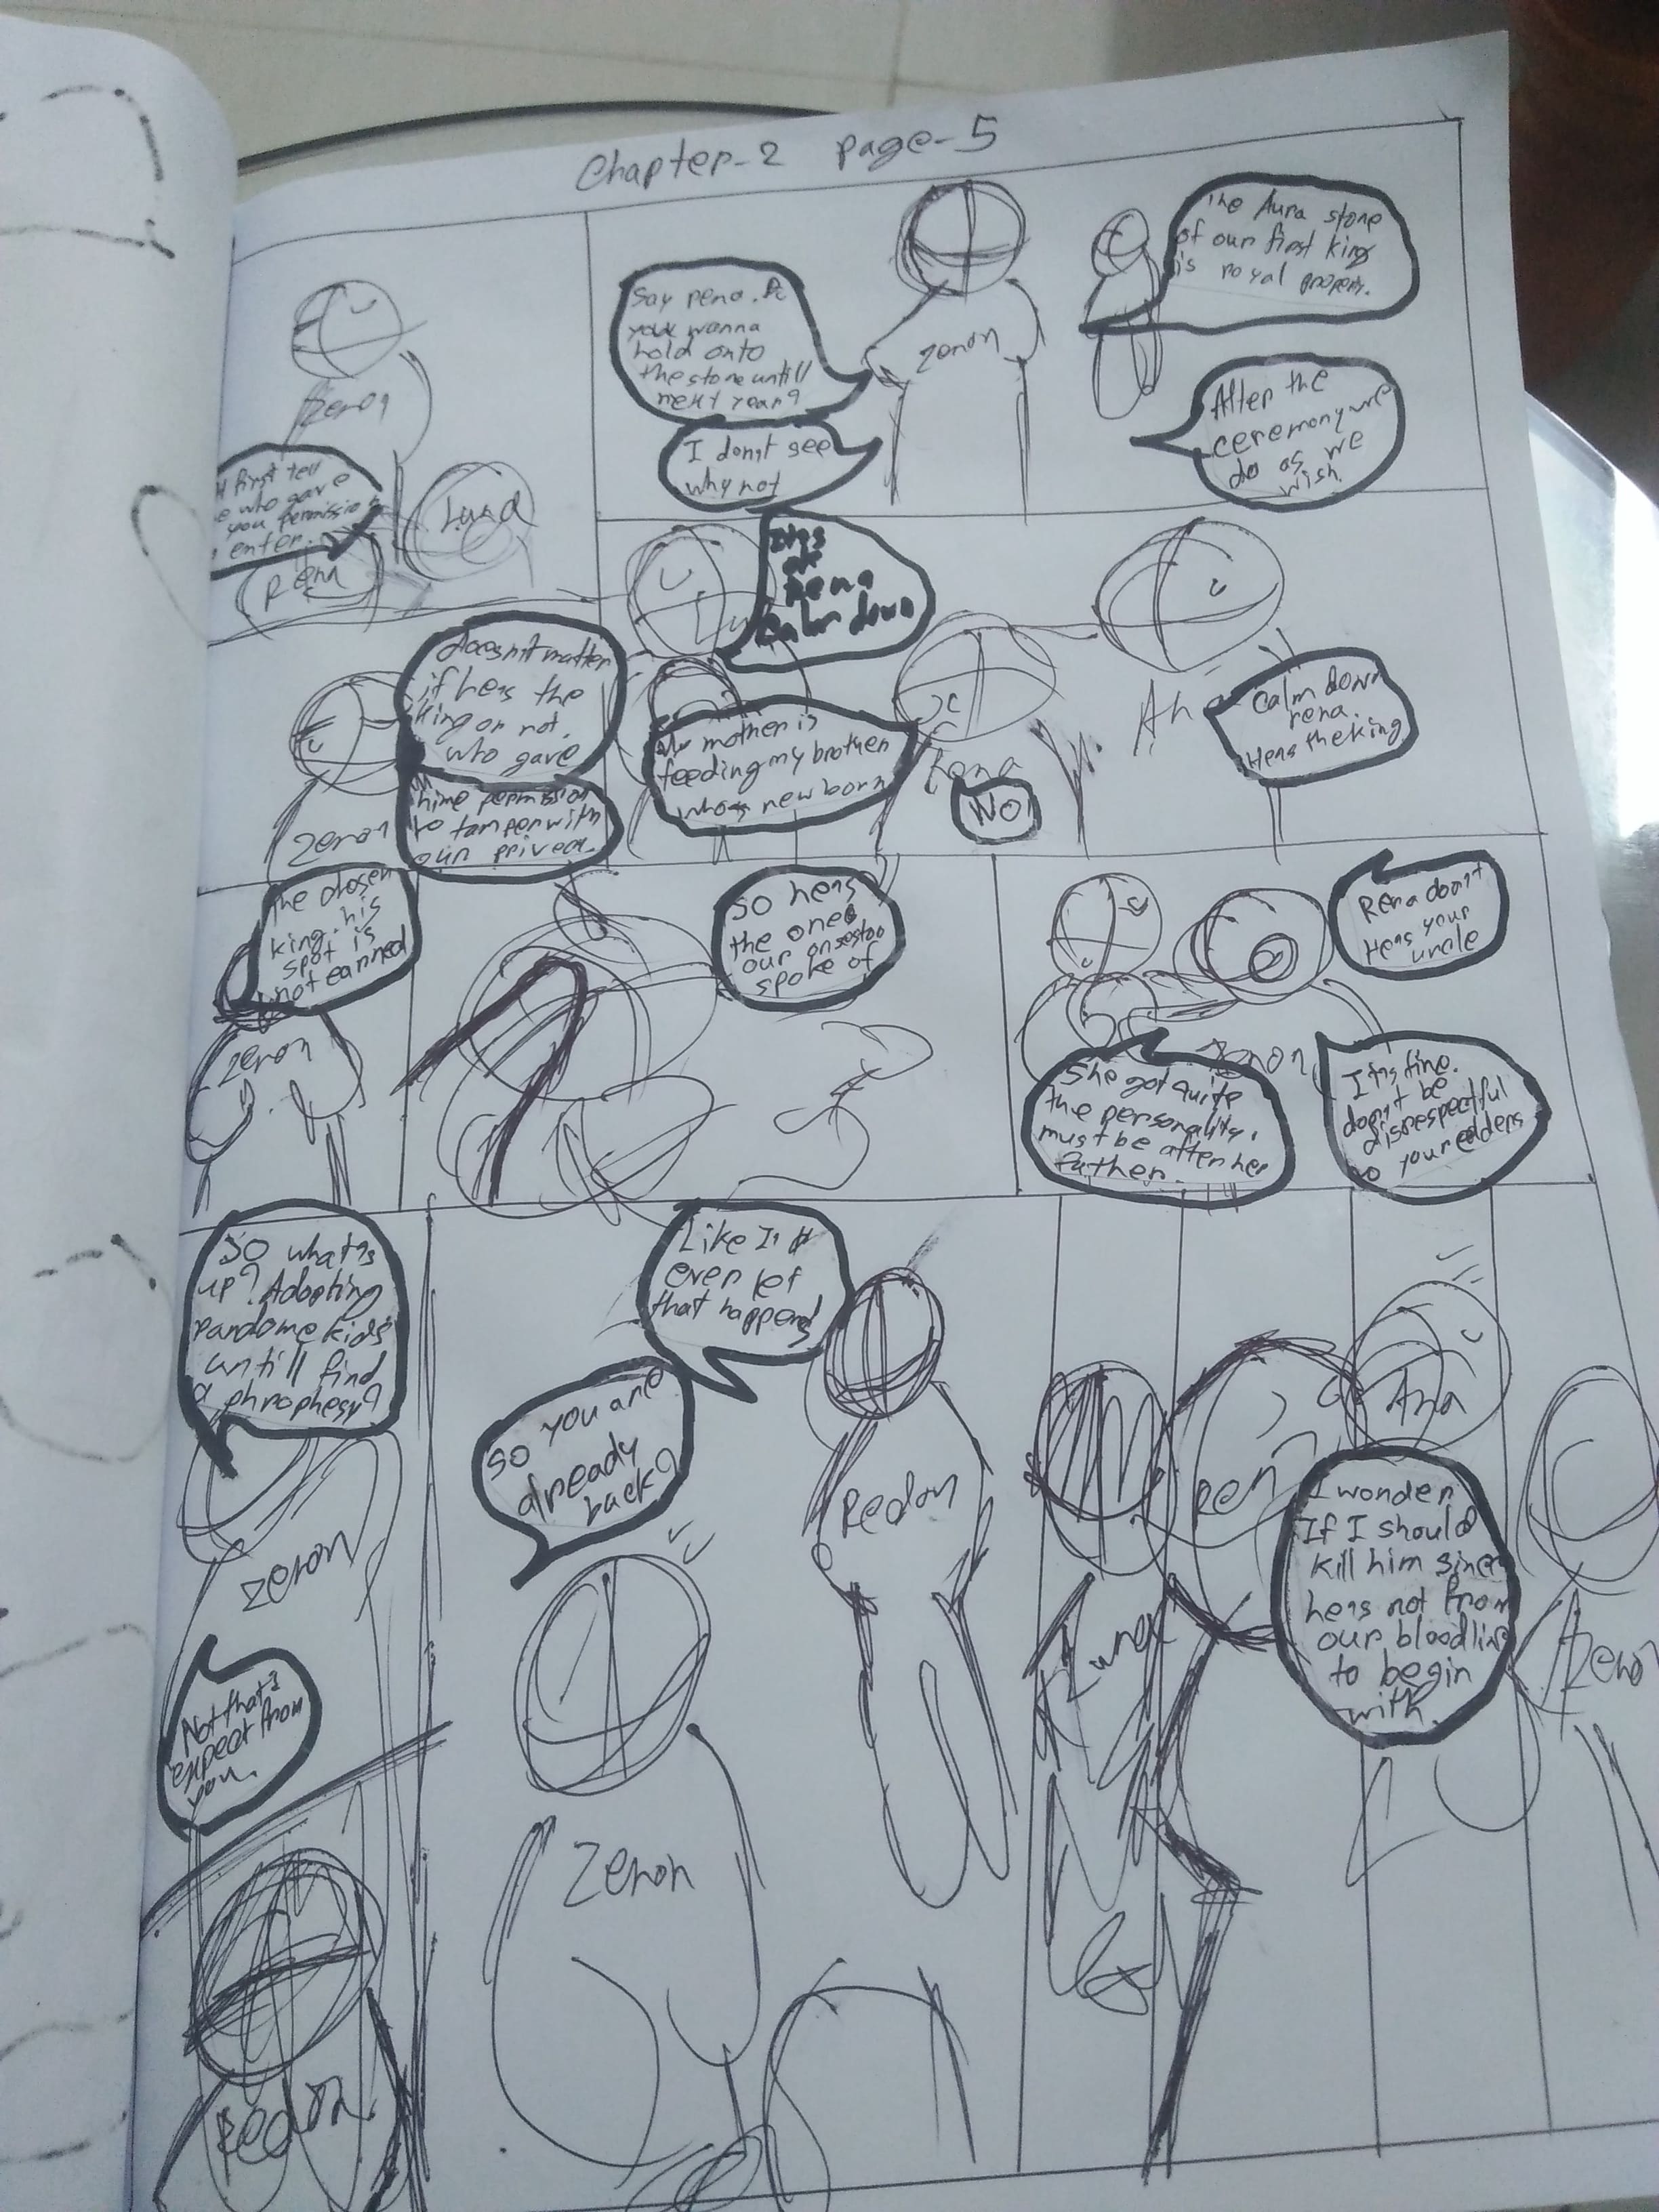 Chapter-2 page-5
Zenon
first tell
who gave
you permission
enter.
Rena
Luna
Say rena. Do
you wanna
hold onto
the stone untill
next year?
I don't see
why not
Zenon
The Aura stone
of our first king
is royal property.
After the
ceremony we
do as we
wish.
It's
ok
Rena
Calm down
Lu
doesn't matter
if he's the
king or not.
who gave
hime permission
to tamper with
our
Zenon
mother is
feeding my brother
who's new born
Rena
NO!
Calm down
rena.
He's the king
The chosen
king. his
spot is
not earned
Zenon
So he's
the one
our
spoke of
Rena don't
He's your
uncle
Zenon
She got quite
the personality.
must be after her
father.
It's fine.
don't be
disrespectful
to your elders
So what's
up? Adopting
randome kids
untill find
a phrophesy?
Zenon
Not that I
expect from
you.
Redon
Like I'd
ever let
that happend
So you are
already
back?
Redon
Zenon
Ren
I wonder
If I should
kill him since
he's not from
our bloodline
to begin
with.